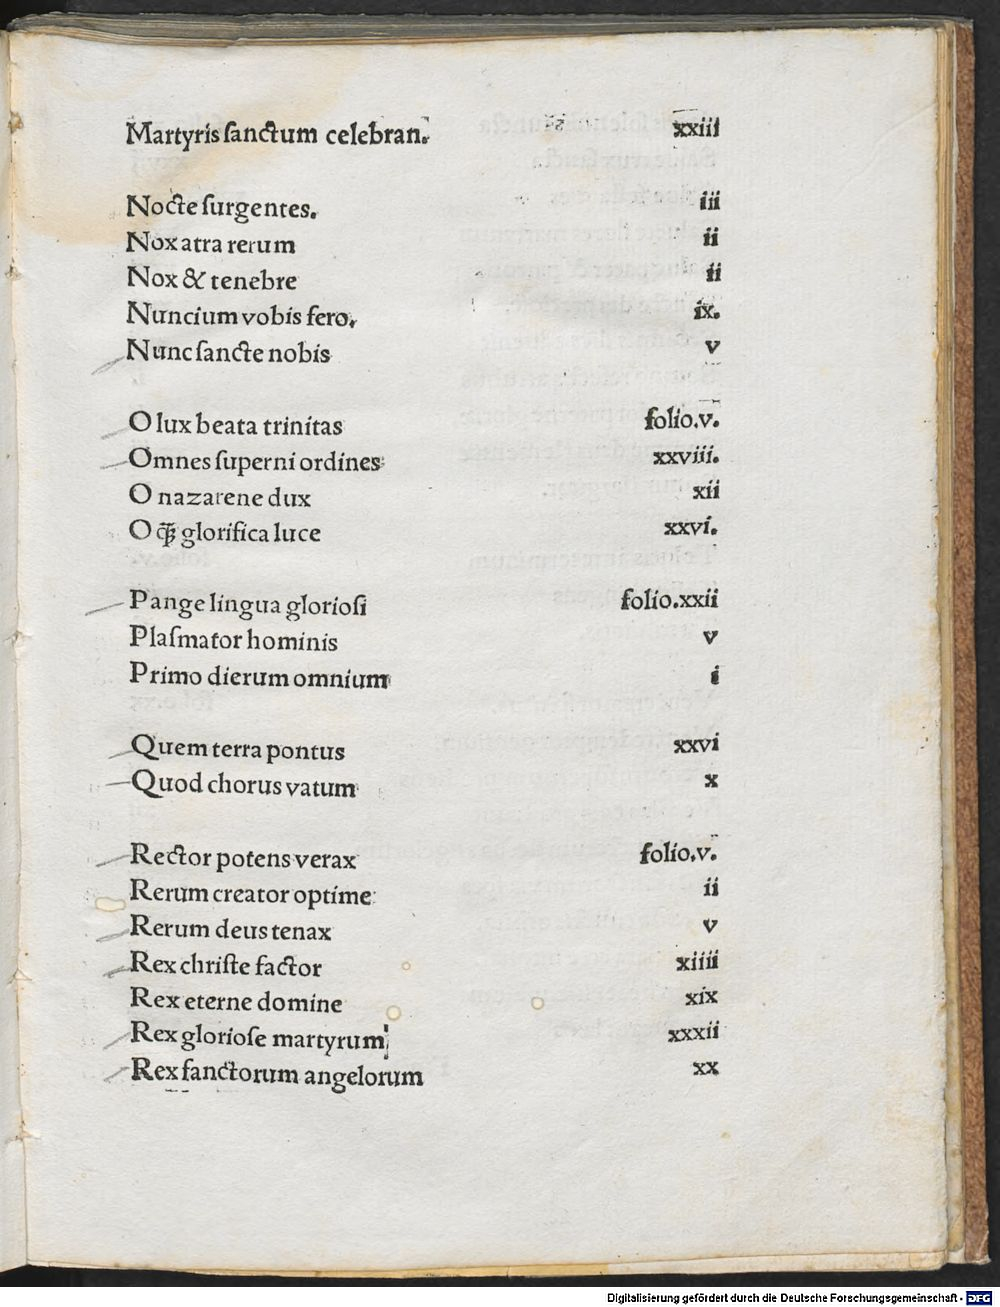 Martyris ſanctum celebran. xxiii
Nocte ſurgentes. iii
Nox atra rerum ii
Nox & tenebre ii
Nuncium vobis fero. ix.
Nunc ſancte nobis v
O lux beata trinitas folio.v.
Omnes ſuperni ordines xxviii.
O nazarene dux xii
O ꝙ̃ glorifica luce xxvi.
Pange lingua glorioſi folio.xxii
Plaſmator hominis v
Primo dierum omnium i
Quem terra pontus xxvi
Quod chorus vatum x
Rector potens verax folio.v.
Rerum creator optime ii
Rerum deus tenax v
Rex chriſte factor xiiii
Rex eterne domine xix
Rex glorioſe martyrum xxxii
Rex ſanctorum angelorum xx
Digitalisierung gefördert durch die Deutsche Forschungsgemeinschaft - DFG